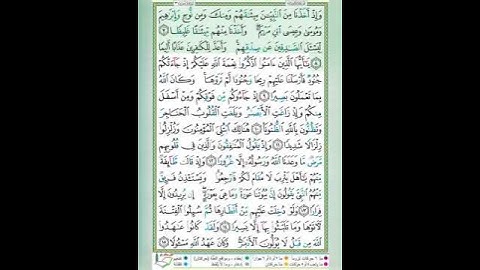 وَإِذْ أَخَذْنَا مِنَ ٱلنَّبِيِّـۧنَ مِيثَـٰقَهُمْ وَمِنكَ وَمِن نُّوحٍ وَإِبْرَٰهِيمَ
وَمُوسَىٰ وَعِيسَى ٱبْنِ مَرْيَمَ ۖ وَأَخَذْنَا مِنْهُم مِّيثَـٰقًا غَلِيظًا ٧
لِّيَسْـَٔلَ ٱلصَّـٰدِقِينَ عَن صِدْقِهِمْ ۚ وَأَعَدَّ لِلْكَـٰفِرِينَ عَذَابًا أَلِيمًا ٨
يَـٰٓأَيُّهَا ٱلَّذِينَ ءَامَنُوا۟ ٱذْكُرُوا۟ نِعْمَةَ ٱللَّهِ عَلَيْكُمْ إِذْ جَآءَتْكُمْ
جُنُودٌ فَأَرْسَلْنَا عَلَيْهِمْ رِيحًا وَجُنُودًا لَّمْ تَرَوْهَا ۚ وَكَانَ ٱللَّهُ
بِمَا تَعْمَلُونَ بَصِيرًا ٩ إِذْ جَآءُوكُم مِّن فَوْقِكُمْ وَمِنْ أَسْفَلَ
مِنكُمْ وَإِذْ زَاغَتِ ٱلْأَبْصَـٰرُ وَبَلَغَتِ ٱلْقُلُوبُ ٱلْحَنَاجِرَ
وَتَظُنُّونَ بِٱللَّهِ ٱلظُّنُونَا۠ ١٠ هُنَالِكَ ٱبْتُلِىَ ٱلْمُؤْمِنُونَ وَزُلْزِلُوا۟
زِلْزَالًا شَدِيدًا ١١ وَإِذْ يَقُولُ ٱلْمُنَـٰفِقُونَ وَٱلَّذِينَ فِى قُلُوبِهِم
مَّرَضٌ مَّا وَعَدَنَا ٱللَّهُ وَرَسُولُهُۥٓ إِلَّا غُرُورًا ١٢ وَإِذْ قَالَت طَّآئِفَةٌ
مِّنْهُمْ يَـٰٓأَهْلَ يَثْرِبَ لَا مُقَامَ لَكُمْ فَٱرْجِعُوا۟ ۚ وَيَسْتَـْٔذِنُ فَرِيقٌ
مِّنْهُمُ ٱلنَّبِىَّ يَقُولُونَ إِنَّ بُيُوتَنَا عَوْرَةٌ وَمَا هِىَ بِعَوْرَةٍ ۖ إِن يُرِيدُونَ إِلَّا
فِرَارًا ١٣ وَلَوْ دُخِلَتْ عَلَيْهِم مِّنْ أَقْطَارِهَا ثُمَّ سُئِلُوا۟ ٱلْفِتْنَةَ
لَـَٔاتَوْهَا وَمَا تَلَبَّثُوا۟ بِهَآ إِلَّا يَسِيرًا ١٤ وَلَقَدْ كَانُوا۟ عَـٰهَدُوا۟
ٱللَّهَ مِن قَبْلُ لَا يُوَلُّونَ ٱلْأَدْبَـٰرَ ۚ وَكَانَ عَهْدُ ٱللَّهِ مَسْـُٔولًا ١٥